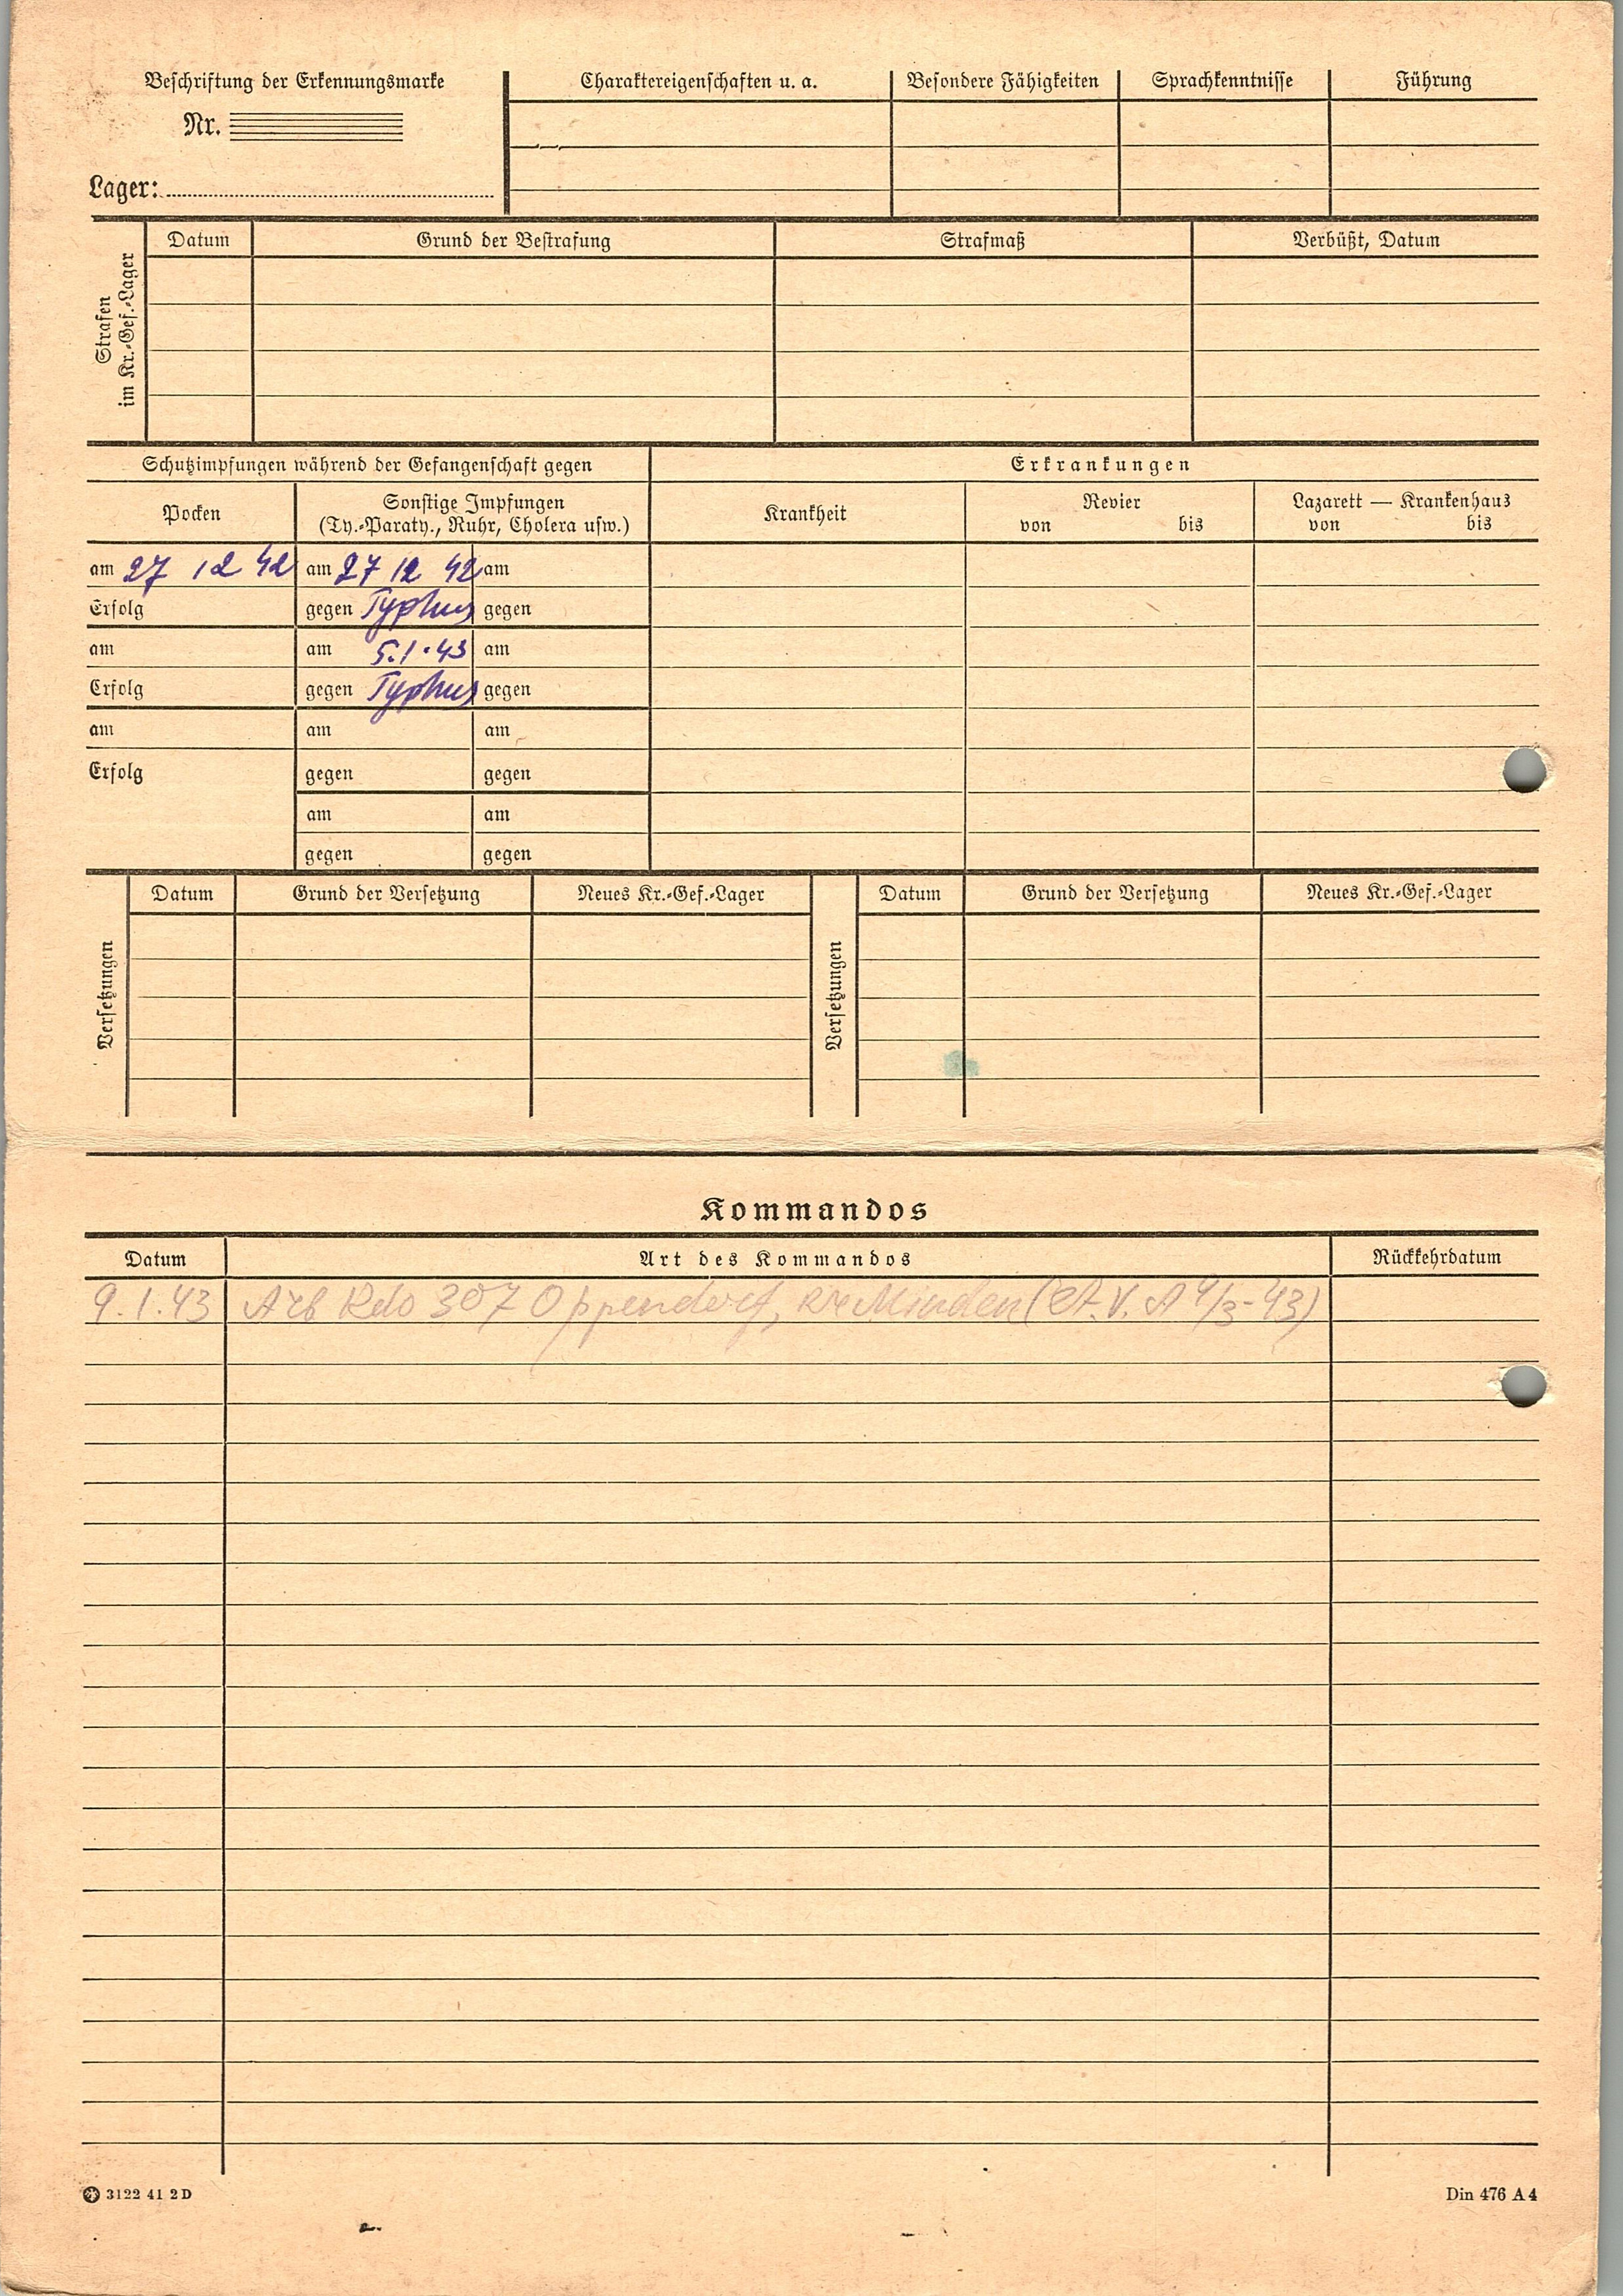 Beschriftung der Erkennungsmarke
Nr.
Lager:
Charaktereigenschaften u. a. Besondere Fähigkeiten Sprachkenntnisse Führung
Strafen
im Kr.-Gef.-Lager
Datum Grund der Bestrafung Strafmaß Verbüßt, Datum
Schutzimpfungen während der Gefangenschaft gegen Erkrankungen
Pocken
Sonstige Impfungen
(Ty.-Paraty., Ruhr, Cholera usw.)
Krankheit
Revier
von bis
Lazarett — Krankenhaus
von bis
am 27 12 42 am 27 12 42 am
Erfolg gegen Typhus gegen
am am 5.1.43 am
Erfolg gegen Typhus gegen
am am am
Erfolg gegen gegen
am am
gegen gegen
Versetzungen
Datum Grund der Versetzung Neues Kr.-Gef.-Lager
Versetzungen
Datum Grund der Versetzung Neues Kr.-Gef.-Lager
Kommandos
Datum Art des Kommandos Rückkehrdatum
9.1.43 Arb Kdo 307 Oppendorf, Kr Minden
3122 41 2 D Din 476 A 4